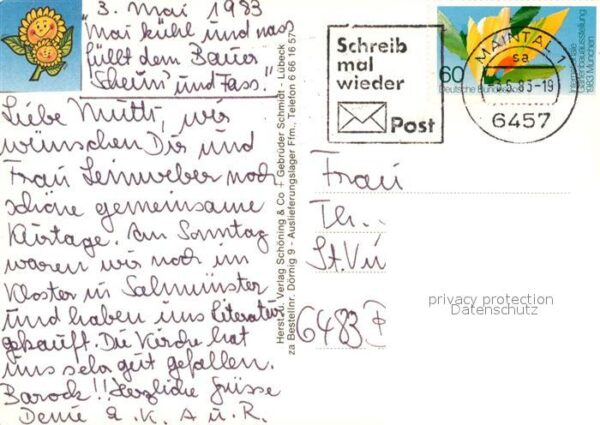 3. Mai 1983
"Mai kühl und nass
füllt dem Bauer
Scheun' und Fass."
Liebe Mutti, wir
wünschen Dir und
Frau Leinweber noch
schöne gemeinsame
Kurtage. Am Sonntag
waren wir noch im
Kloster in Salmünster
und haben uns Literatur
gekauft. Die Kirche hat
uns sehr gut gefallen.
Barock!! Herzliche Grüsse
Deine E. K. A u. R.
Herst. u. Verlag Schöning & Co + Gebrüder Schmidt · Lübeck
za Bestellnr. Dörnig 9 - Auslieferungslager Ffm., Telefon 6 66 16 57
Schreib
mal
wieder
Post
60
Deutsche Bundespost
Internationale
Gartenbauausstellung
1983 München
MAINTAL 1
sa
.5.83-19
6457
Frau
Th..
St.Vi
6483
privacy protection
Datenschutz